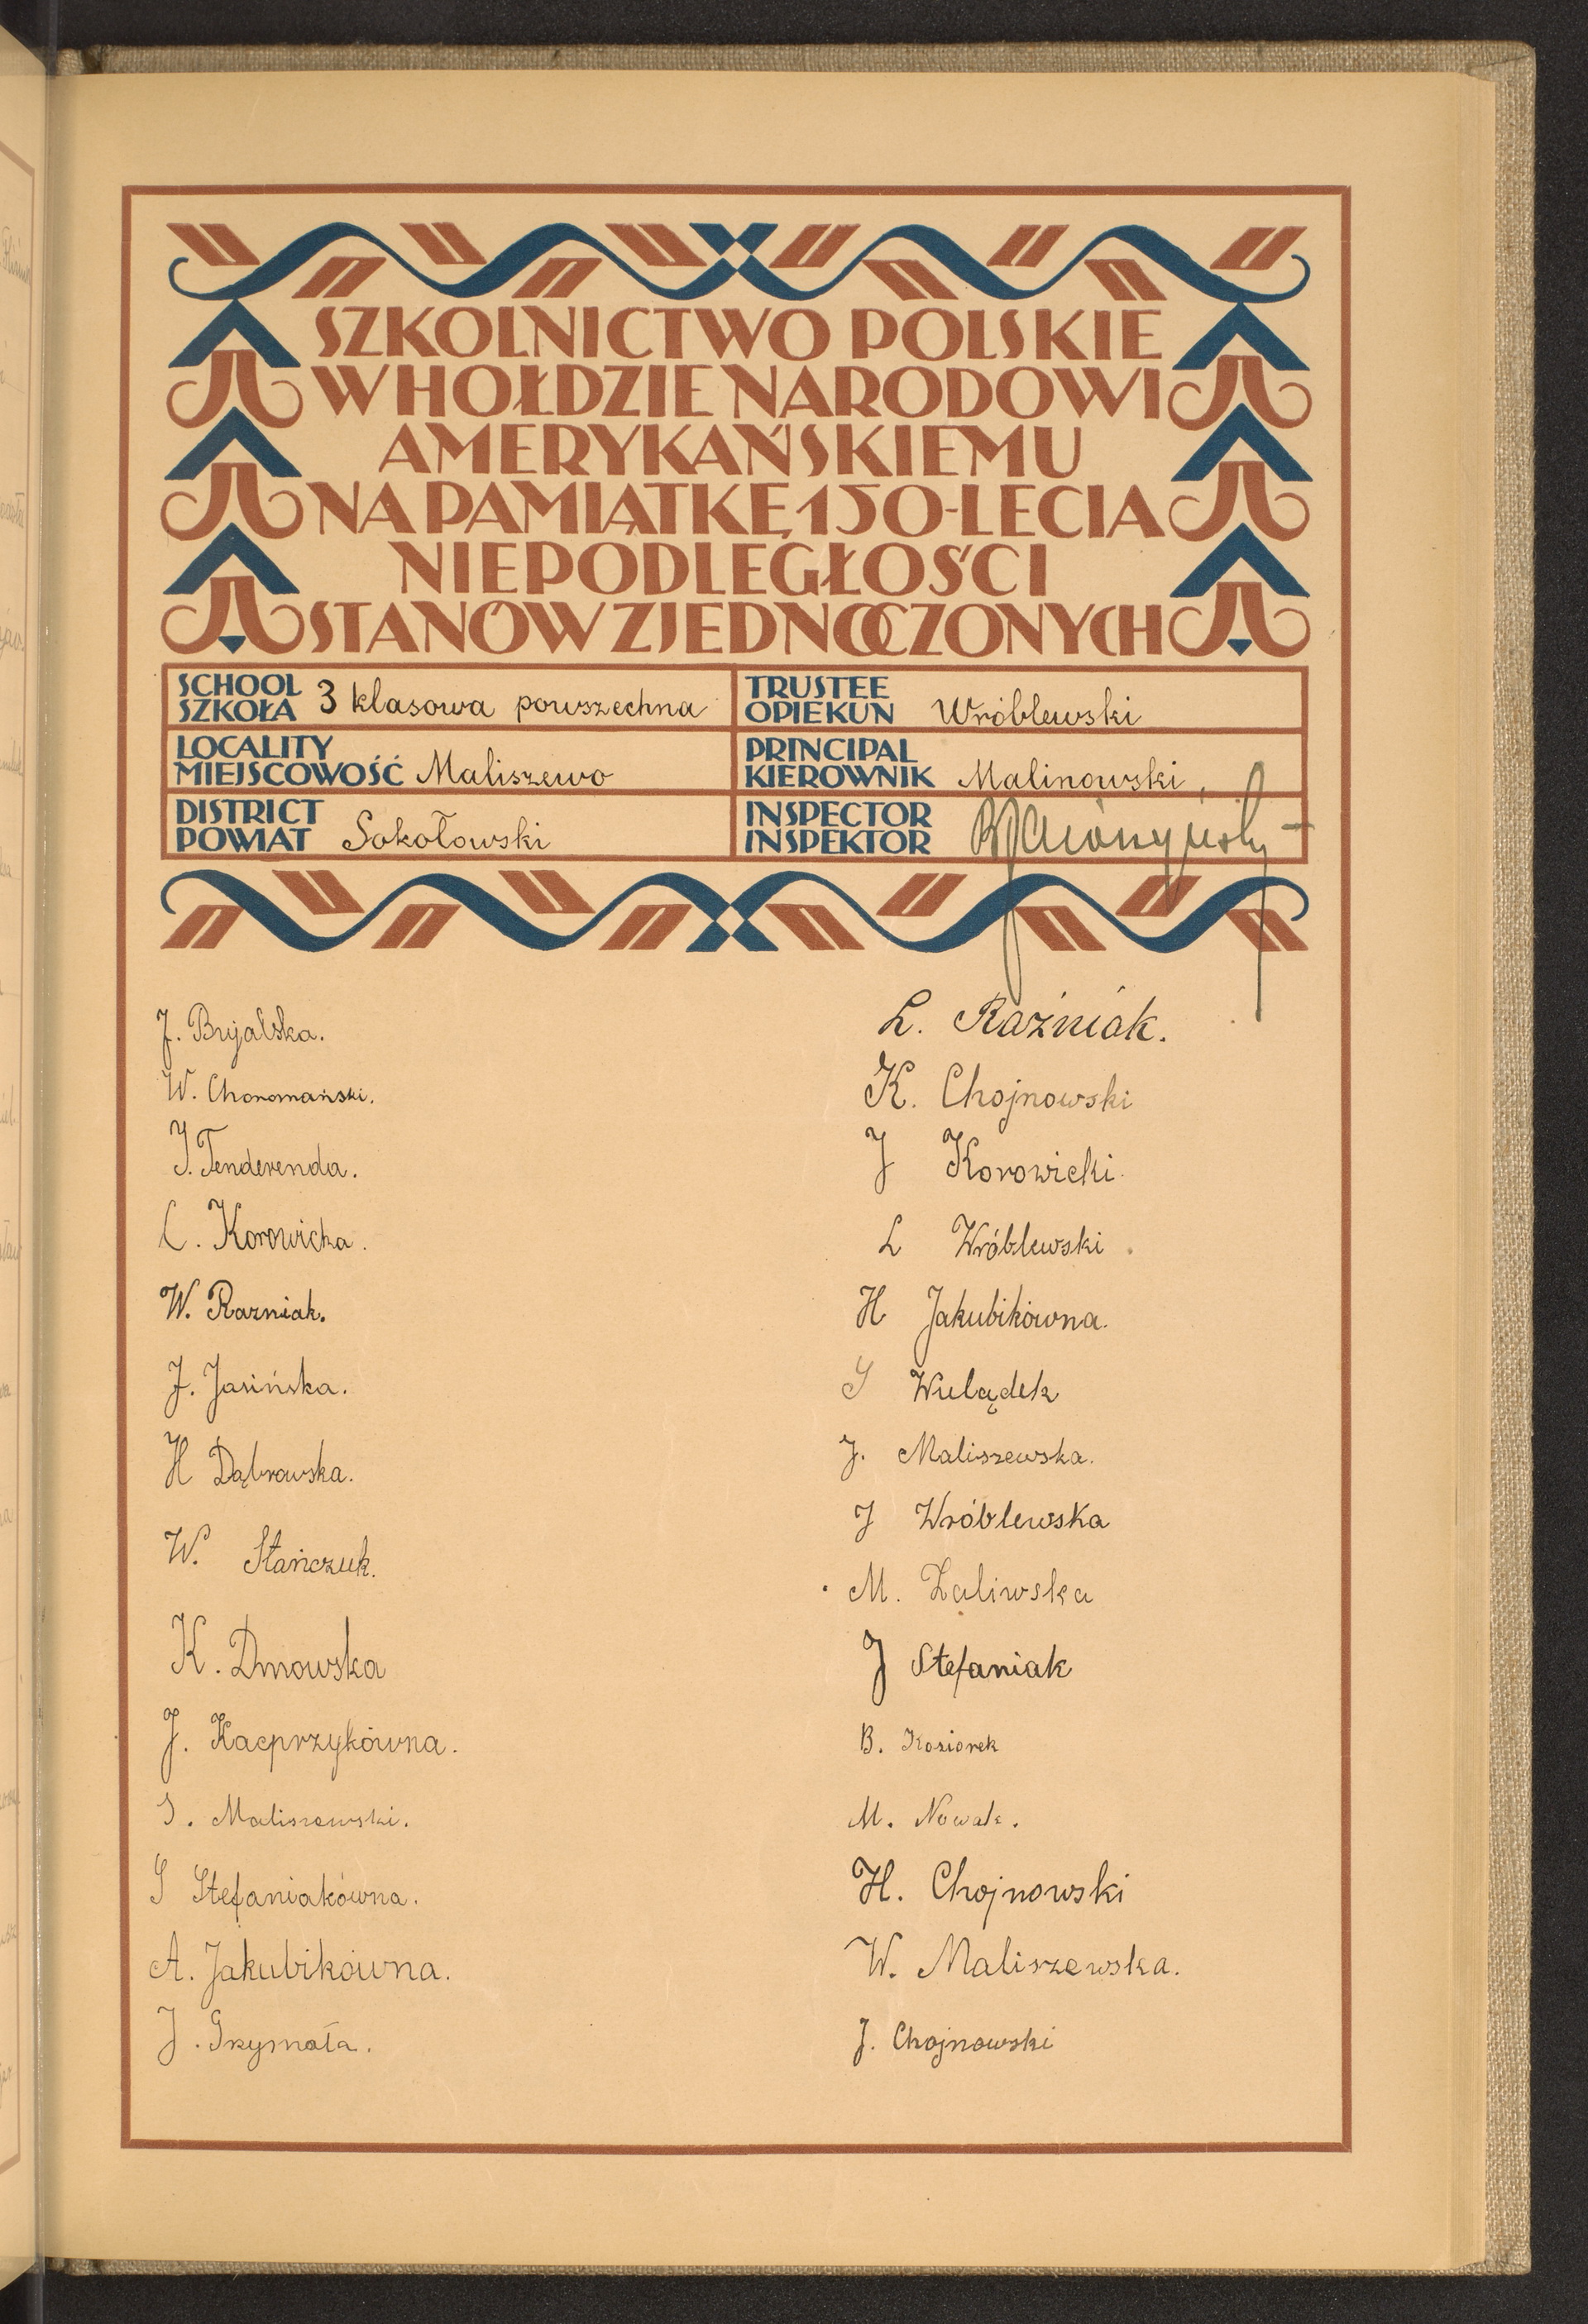 SZKOLNICTWO POLSKIE
W HOŁDZIE NARODOWI
AMERYKAŃSKIEMU
NA PAMIĄTKĘ 150-LECIA
NIEPODLEGŁOŚCI
STANÓW ZJEDNOCZONYCH
SCHOOL
SZKOŁA 3 klasowa powszechna
TRUSTEE
OPIEKUN Wróblewski
LOCALITY
MIEJSCOWOŚĆ Maliszewo
PRINCIPAL
KIEROWNIK Malinowski
DISTRICT
POWIAT Sokołowski
INSPECTOR
INSPEKTOR
J. Bujalska.
W. Choromański.
J. Tenderenda.
C. Korowicka.
W. Razniak.
J. Jasińska.
H Dąbrowska.
W. Stańczuk.
K. Dmowska
J. Kacprzykówna.
S. Maliszewski.
S Stefaniakówna.
A. Jakubikówna.
J. Grzymała.
L. Raźniak.
K. Chojnowski
J Korowicki.
L Wróblewski.
H Jakubikówna.
S
J. Maliszewska.
J Wróblewska
M. Zaliwska
J Stefaniak
B. Koziorek
M. Nowak.
H. Chojnowski
W. Maliszewska.
J. Chojnowski